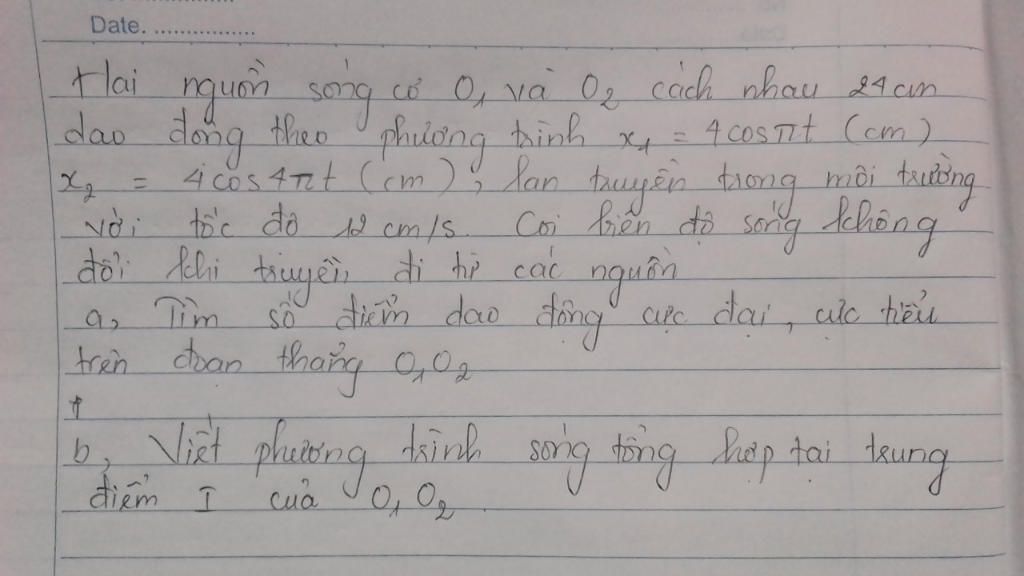 Date. ................
Hai nguồn sóng cơ O₁ và O₂ cách nhau 24cm
dao động theo phương trình x₁ = 4cosπt (cm)
x₂ = 4cos4πt (cm), lan truyền trong môi trường
với tốc độ 12 cm/s. Coi biên độ sóng không
đổi khi truyền đi từ các nguồn
a, Tìm số điểm dao động cực đại, cực tiểu
trên đoạn thẳng O₁O₂
b, Viết phương trình sóng tổng hợp tại trung
điểm I của O₁O₂